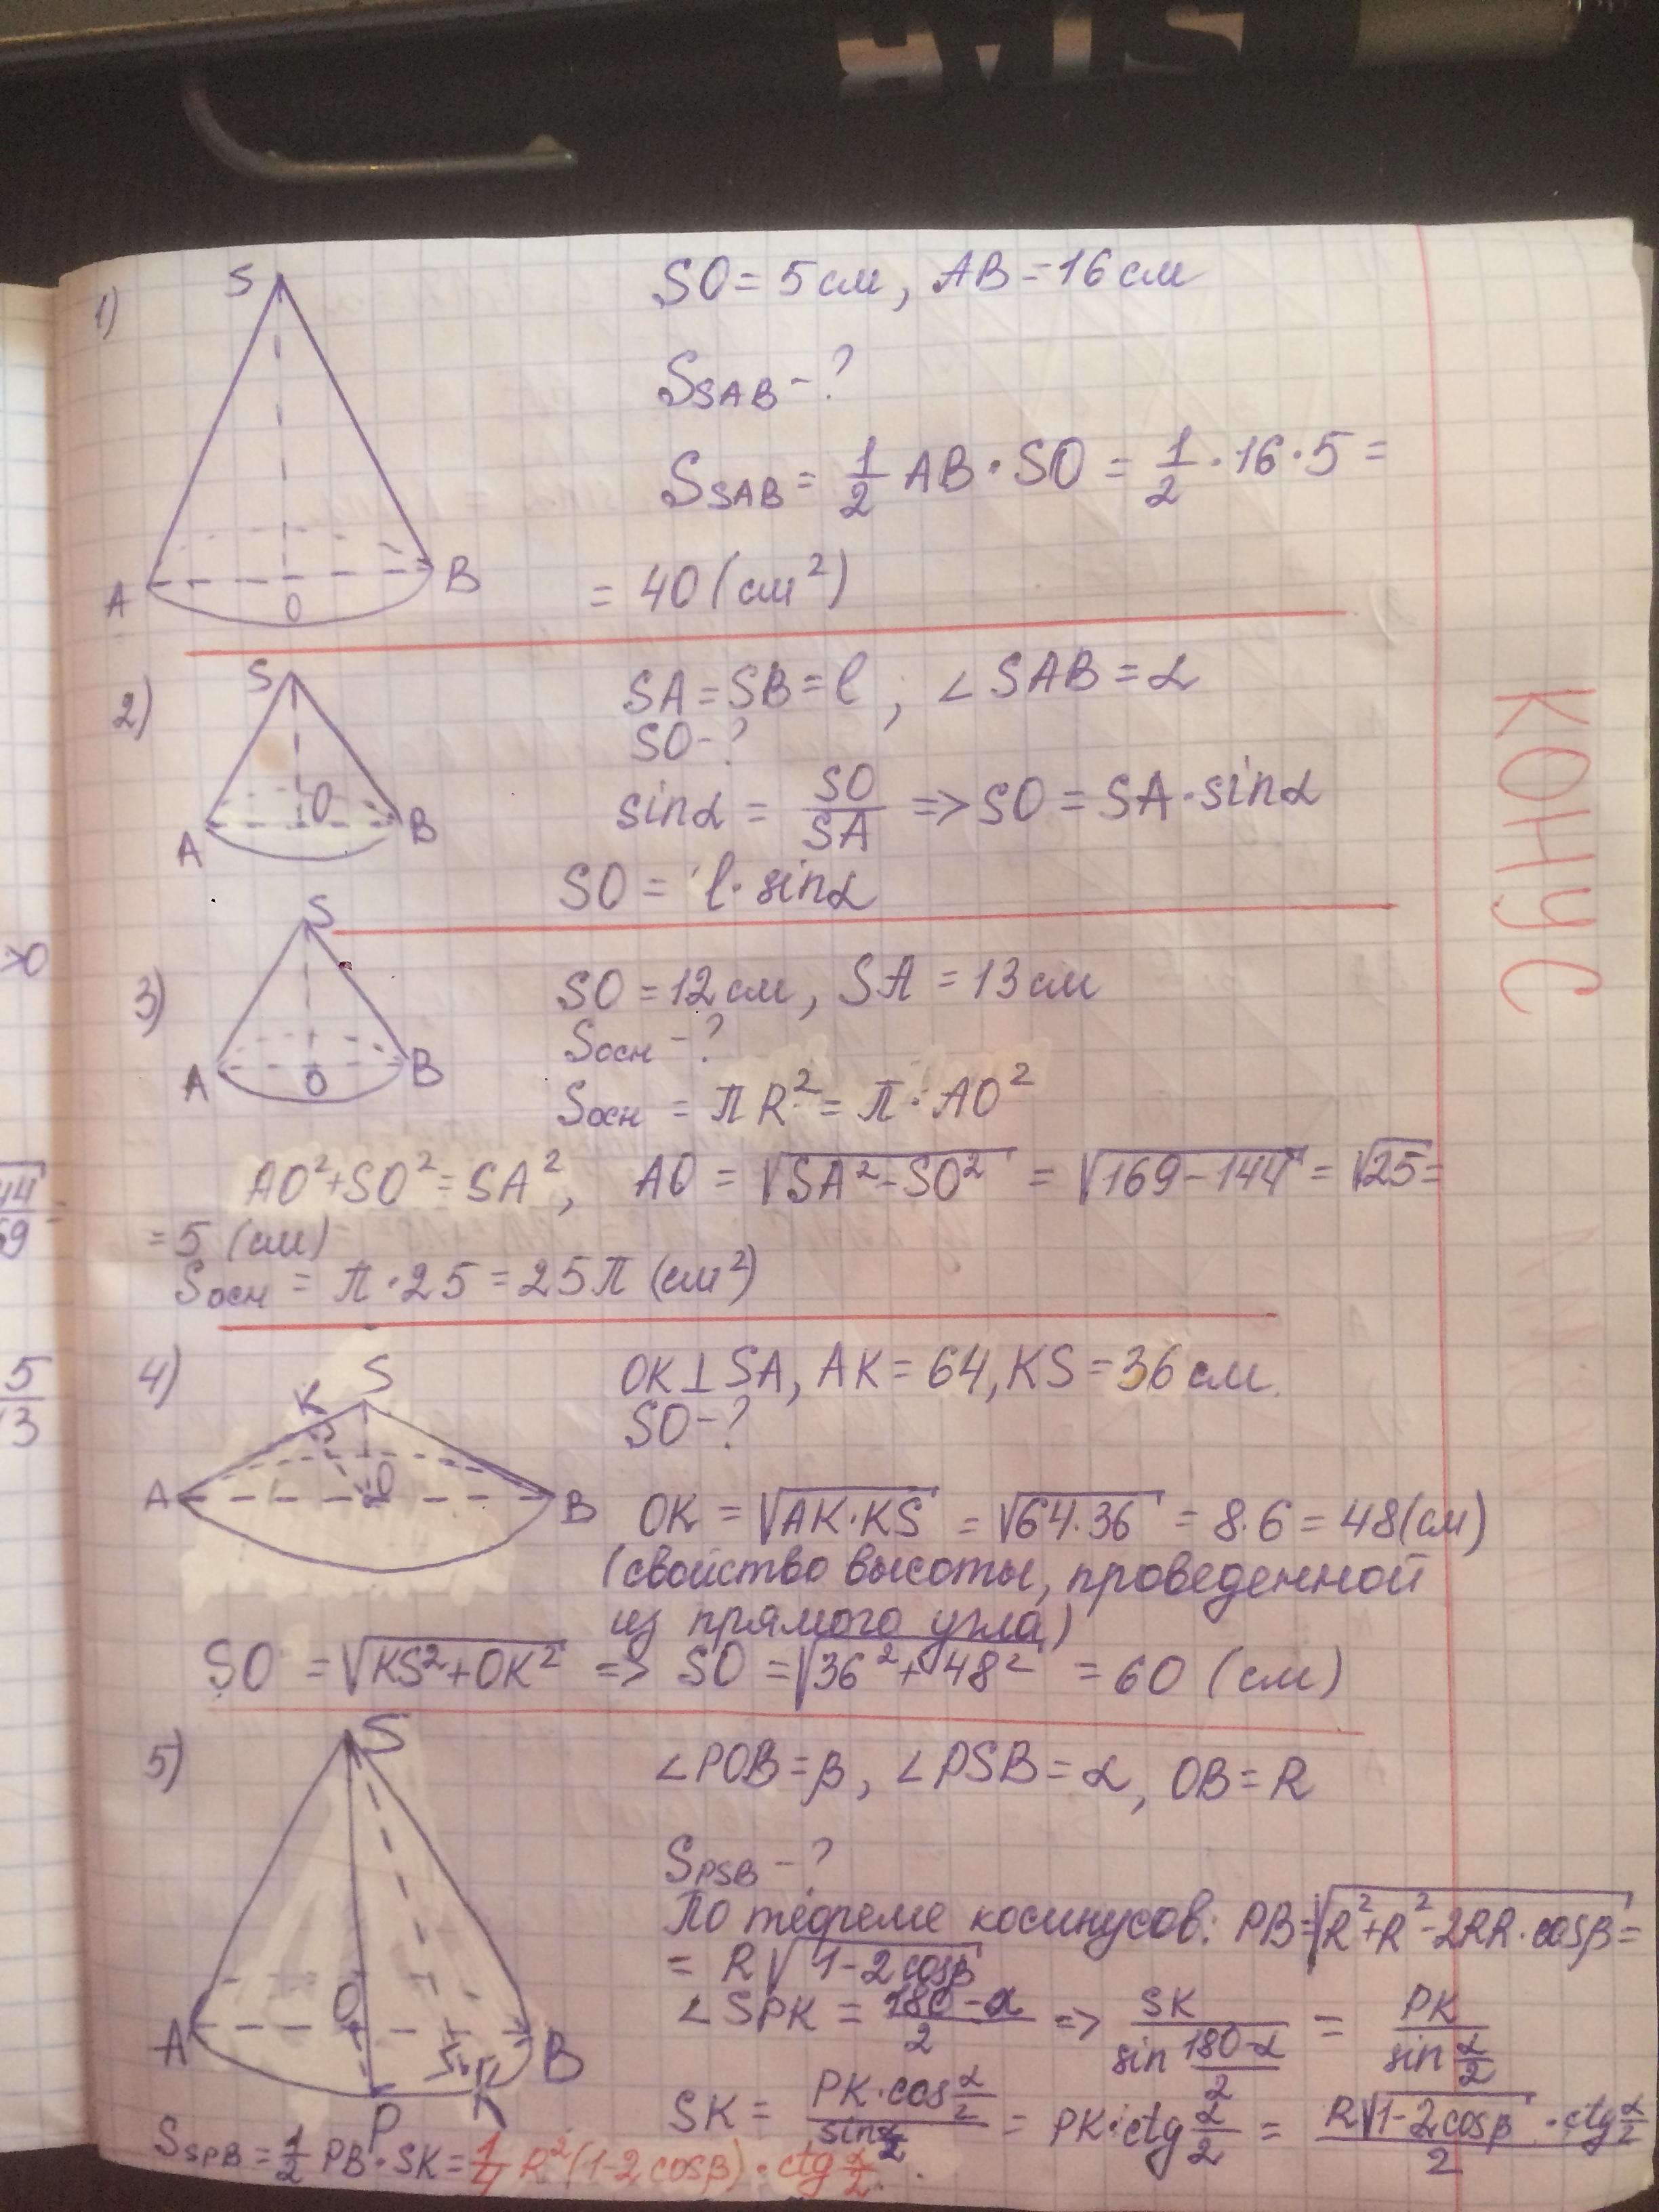 1)
S
A
O
B
SO = 5 см, AB = 16 см
S_SAB - ?
S_SAB = 1/2 AB · SO = 1/2 · 16 · 5 =
= 40 (см²)
2)
S
A
O
B
SA = SB = l ; ∠SAB = α
SO - ?
sinα = SO/SA => SO = SA · sinα
SO = l · sinα
КОНУС
3)
S
A
O
B
SO = 12 см, SA = 13 см
Sосн - ?
Sосн = πR² = π · AO²
AO² + SO² = SA², AO = √(SA² - SO²) = √(169 - 144) = √25 =
= 5 (см)
Sосн = π · 25 = 25π (см²)
4)
K
S
A
O
B
OK ⊥ SA, AK = 64, KS = 36 см.
SO - ?
OK = √(AK · KS) = √(64 · 36) = 8 · 6 = 48 (см)
(свойство высоты, проведенной
из прямого угла)
SO = √(KS² + OK²) => SO = √(36² + 48²) = 60 (см)
5)
S
A
O
B
P
K
∠POB = β, ∠PSB = α, OB = R
S_PSB - ?
По теореме косинусов: PB = √(R² + R² - 2RR · cosβ) =
= R√(1 - 2cosβ)
∠SPK = (180 - α)/2 => SK/(sin (180 - α)/2) = PK/(sin α/2)
SK = (PK · cos α/2)/(sin α/2) = PK · ctg α/2 = (R√(1 - 2cosβ))/2 · ctg α/2
S_SPB = 1/2 PB · SK = 1/4 R² (1 - 2cosβ) · ctg α/2.
>0
44
69
5
13